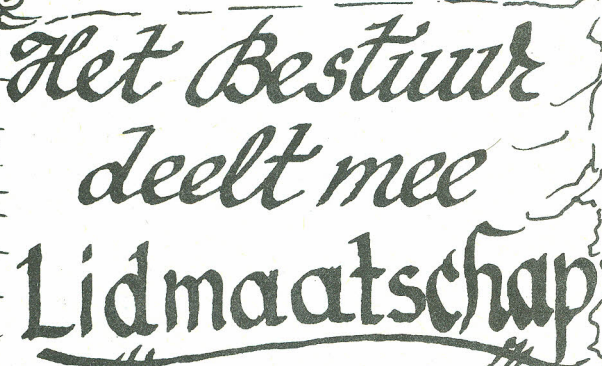 Het Bestuur
deelt mee
Lidmaatschap